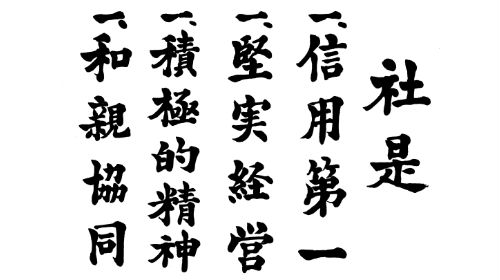 社是
一、信用第一
一、堅実経営
一、積極的精神
一、和親協同